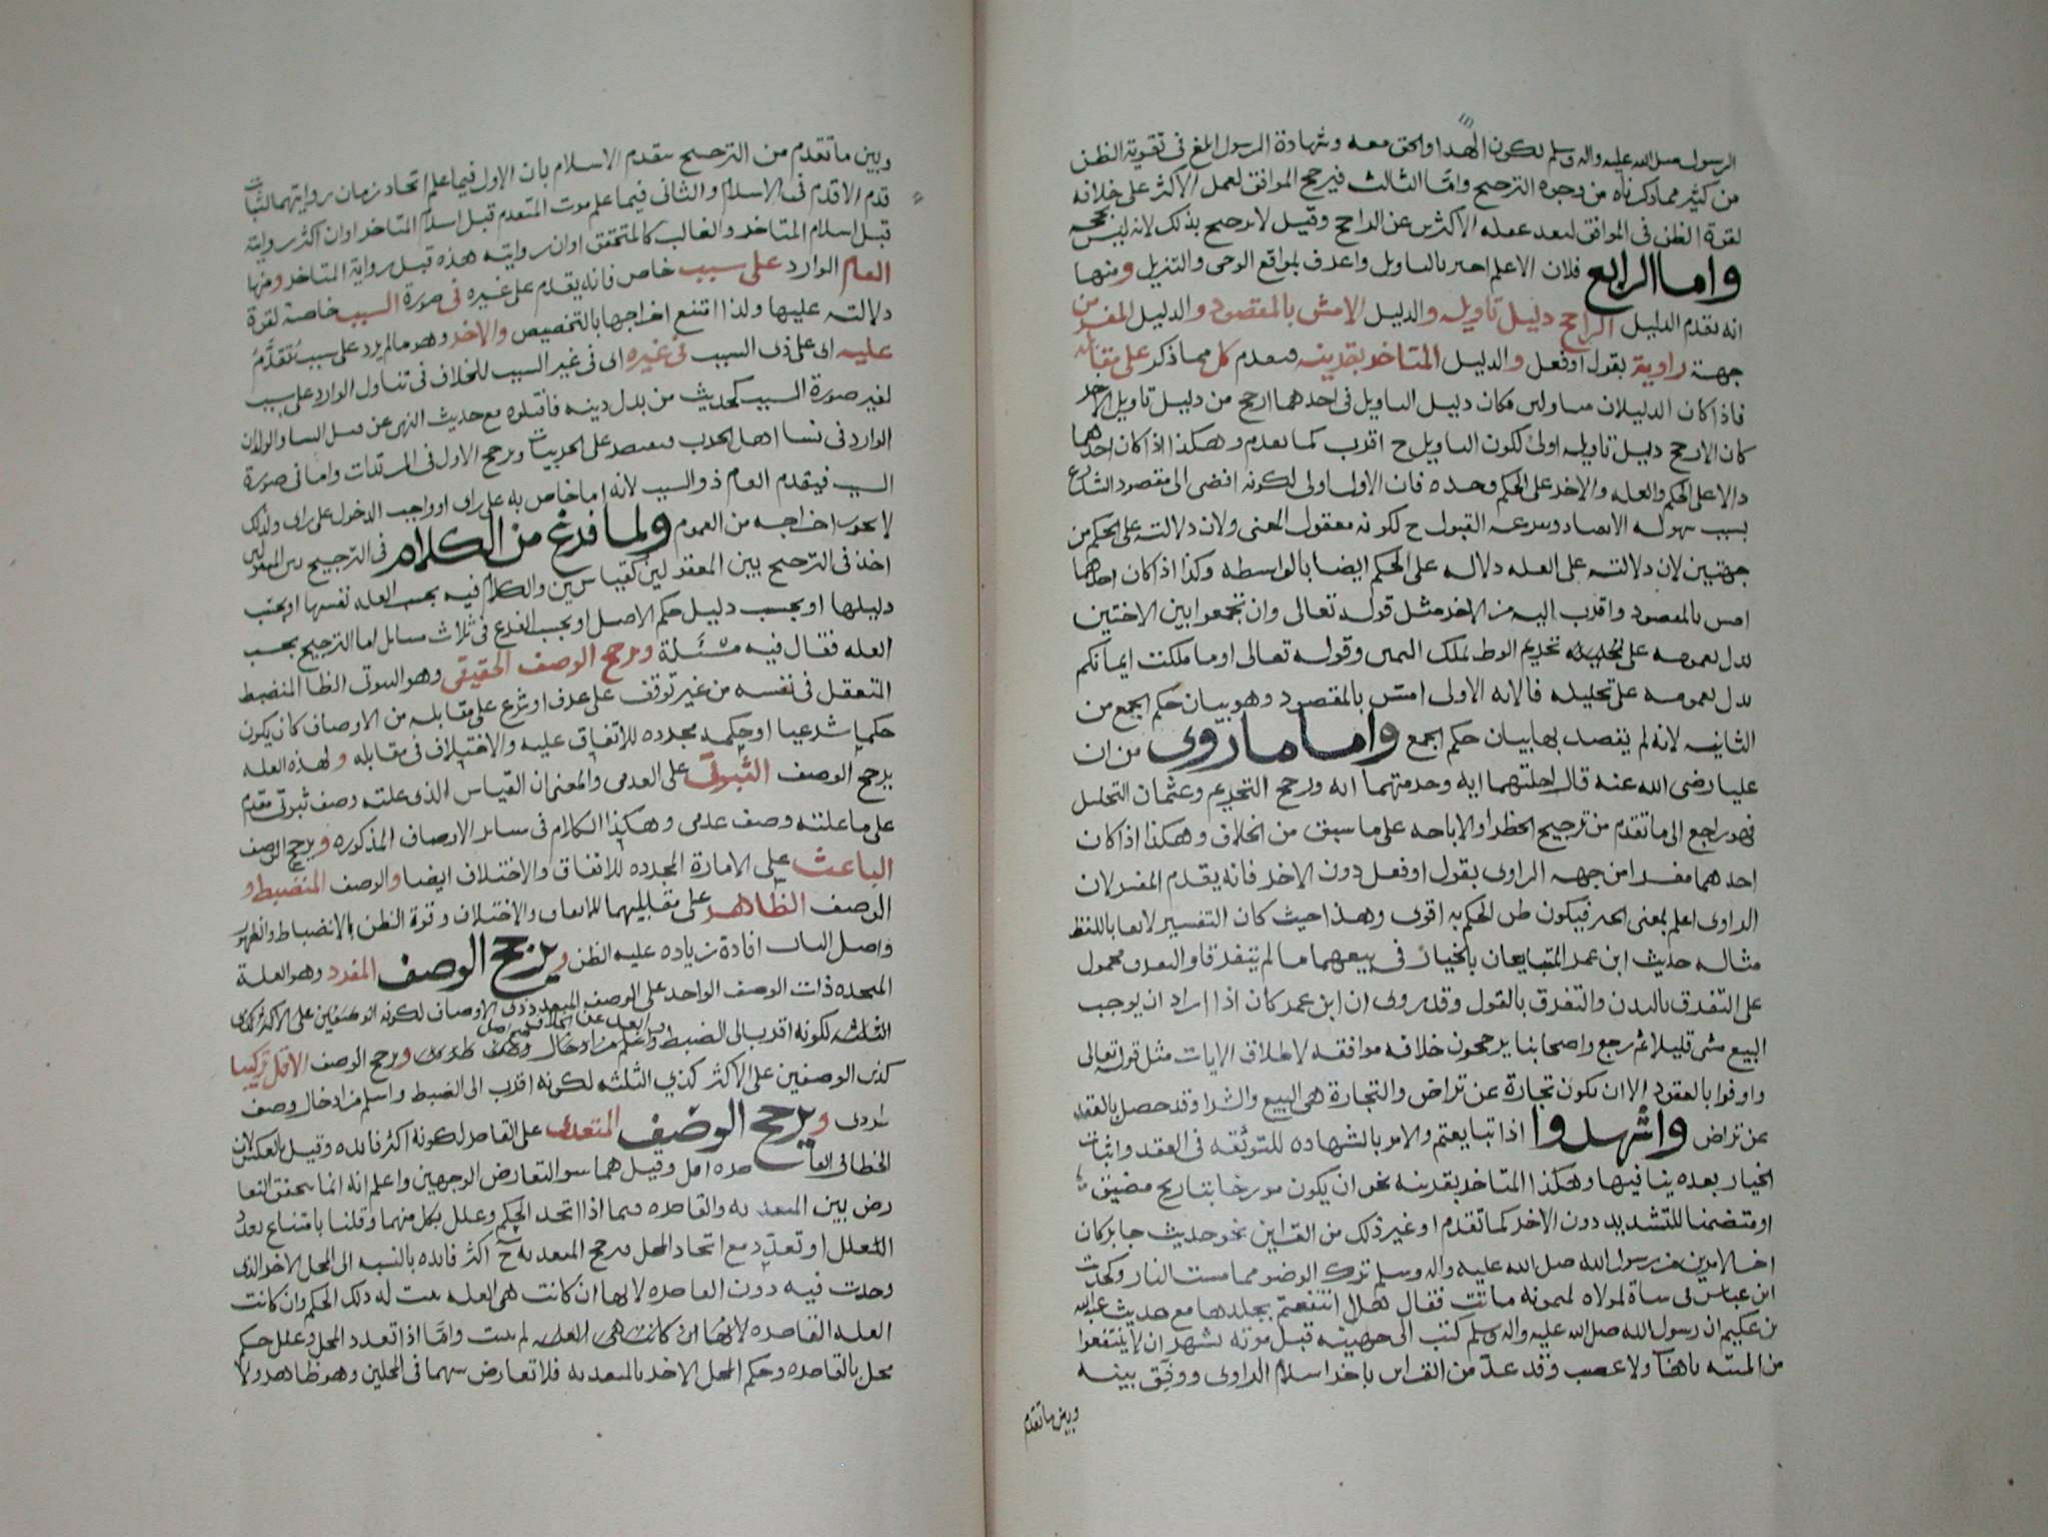 الرسول صلى الله عليه واله وسلم لكون الهدا والحق معه وشهادة الرسول المغ فى تقوية الظن
من كثير مما ذكرناه من وجوه الترجيح وامّا الثالث فيرجح الموافق لعمل الاكثر على خلافه
لقوة الظن فى الموافق لبعد غفله الاكثرين عن الراجح وقيل لا ترجيح بذلك لانه ليس بحجه
واما الرابع فلان الاعلم اخبر بالتاويل واعرف بمواقع الوحى والتنزيل ومنها
انه يقدم الدليل الراجح دليل تاويله والدليل الامسّ بالمقصود والدليل المفسر من
جهة راويه بقول او فعل والدليل المتاخر بقرينه فيقدم كل مما ذكر على مقابله
فاذا كان الدليلان متاولين فكان دليل التاويل فى احدهما ارجح من دليل تاويل الاخر
كان الارجح دليل تاويله اولى لكون التاويل ح اقرب كما تقدم وهكذا اذا كان احدهما
دالا على الحكم والعله والاخر على الحكم وحده فان الاول اولى لكونه افضى الى مقصود الشارع
بسبب سهوله الانقياد وسرعه القبول ح لكونه معقول المعنى ولان دلالته على الحكم من
جهتين لان دلالته على العله دلاله على الحكم ايضا بالواسطه وكذا اذا كان احدهما
امس بالمقصود واقرب اليه من الاخر مثل قوله تعالى وان تجمعوا بين الاختين
يدل بعمومه على تحريم الوطى بملك اليمين وقوله تعالى او ما ملكت ايمانكم
يدل بعمومه على تحليله فالايه الاولى امسّ بالمقصود وهو بيان حكم الجمع من
الثانيه لانه لم يقصد بها بيان حكم الجمع واما ما روى من ان
عليا رضى الله عنه قال احلتهما ايه وحرمتهما ايه ورجح التحريم وعثمان التحليل
فهو راجع الى ما تقدم من ترجيح الحظر او الاباحه على ما سبق من الخلاف وهكذا اذا كان
احدهما مفسرا من جهه الراوى بقول او فعل دون الاخر فانه يقدم المفسر لان
الراوى اعلم بمعنى الخبر فيكون ظن الحكم به اقوى وهذا حيث كان التفسير لائقا باللفظ
مثاله حديث ابن عمر المتبايعان بالخيار فى بيعهما ما لم يتفرقا والتفرق محمول
على التفرق بالبدن والتفرق بالقول وقد روى ان ابن عمر كان اذا اراد ان يوجب
البيع مشى قليلا ثم رجع واصحابنا يرجحون خلافه موافقه لاطلاق الايات مثل قوله تعالى
واوفوا بالعقود الا ان تكون تجارة عن تراض والتجارة هى البيع والشرا وقد حصل بالعقد
عن تراض واشهدوا اذا تبايعتم والامر بالشهاده للتوثقه فى العقد واثبات
الخيار بعده ينافيها وهكذا المتاخر بقرينه نحو ان يكون مورخا بتاريخ مضيق
او متضمنا للتشديد دون الاخر كما تقدم او غير ذلك من القراين نحو حديث جابر كان
اخر الامرين من رسول الله صلى الله عليه واله وسلم ترك الوضو مما مست النار وكحديث
ابن عباس فى شاة لمولاه لميمونه ماتت فقال هلا انتفعتم بجلدها مع حديث عبدالله
بن عكيم ان رسول الله صلى الله عليه واله وسلم كتب الى جهينه قبل موته بشهر ان لا ينتفعوا
من الميته باهاب ولا عصب وقد عدّ من القراين باخر اسلام الراوى ووفق بينه
وبين ما تقدم
وبين ما تقدم من الترجيح بتقدم الاسلام بان الاول فيما علم اتحاد زمان روايتهما لثبات
قدم الاقدم فى الاسلام والثانى فيما علم موت المتقدم قبل اسلام المتاخر او ان اكثر روايته
قبل اسلام المتاخر والغالب كالمتحقق او ان روايته هذه قبل رواية المتاخر ومنها
العام الوارد على سبب خاص فانه يقدم على غيره فى صورة السبب خاصة لقوة
دلالته عليها ولذا امتنع اخراجها بالتخصيص والاخر وهو ما لم يرد على سبب يُقدَّم
عليه اى على ذى السبب فى غيره اى فى غير السبب للخلاف فى تناول الوارد على سبب
لغير صورة السبب كحديث من بدل دينه فاقتلوه مع حديث النهى عن قتل النسا والولدان
الوارد فى نسا اهل الحرب فيقتصر على الحربيات ويرجح الاول فى المرتدات واما فى صورة
السبب فيقدم العام ذو السبب لانه اما خاص به على راى او واجب الدخول على راى ولذلك
لا يجوز اخراجه من العموم ولما فرغ من الكلام فى الترجيح بين المنقولين
اخذ فى الترجيح بين المعقولين كقياسين والكلام فيه بحسب العله نفسها او بحسب
دليلها او بحسب دليل حكم الاصل او بحسب الفرع فى ثلاث مسايل اما الترجيح بحسب
العله فقال فيه مسئلة ويرجح الوصف الحقيقى وهو الثبوتى الظا المنضبط
المتعقل فى نفسه من غير توقف على عرف او شرع على مقابله من الاوصاف كان يكون
حكما شرعيا او حكمه مجرده للاتفاق عليه والاختلاف فى مقابله ولهذه العله
يرجح الوصف الثبوتى على العدمى والمعنى ان القياس الذى علته وصف ثبوتى مقدم
على ما علته وصف عدمى وهكذا الكلام فى ساير الاوصاف المذكوره ويرجح الوصف
الباعث على الامارة المجرده للاتفاق والاختلاف ايضا والوصف المنضبط و
الوصف الظاهر على مقابليهما للاتفاق والاختلاف وقوة الظن بالانضباط والظهور
واصل الباب افادة زياده عليه الظن ويرجح الوصف المفرد وهو العلة
المتحده ذات الوصف الواحد على الوصف المتعدد ذوى الاوصاف لكونه الوصفين على الاكثر كذى
الثلثه لكونه اقرب الى الضبط وابعد عن الخلاف واسلم من ادخال وصف طردى ويرجح الوصف الاقل تركيبا
كذى الوصفين على الاكثر كذي الثلثه لكونه اقرب الى الضبط واسلم من ادخال وصف
طردى ويرجح الوصف المتعدى على القاصر لكونه اكثر فائده وقيل بالعكس لان
الخطا فى القاصره اقل وقيل هما سوا لتعارض الوجهين واعلم انه انما يتحقق التعا
رض بين المتعديه والقاصره فيما اذا اتحد الحكم وعلل بكل منهما وقلنا بامتناع تعدد
العلل او تعدّد مع اتحاد المحل فيرجح المتعديه ح اكثر فائده بالنسبه الى المحل الاخر الذى
وجدت فيه دون القاصره لانها ان كانت هى العله ثبت له ذلك الحكم وان كانت
العله القاصره لانها ان كانت هى العله لم يثبت وامّا اذا تعدد المحل وعلل حكم
محل بالقاصره وحكم المحل الاخر بالمتعديه فلا تعارض بينهما فى المحلين وهو ظاهر ولا